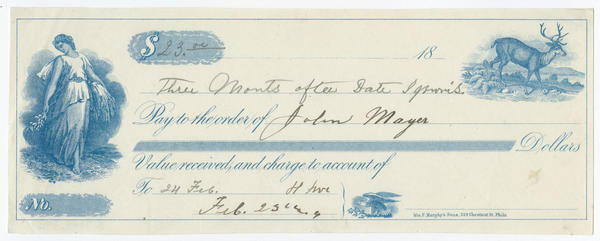 $ 23.00
18
Three Monts after Date I promis
Pay to the order of John Mayer
Dollars
Value received, and charge to account of
To 24 Feb. H
No. Feb. 25
Wm. F. Murphy's Sons, 509 Chestnut St. Phila.